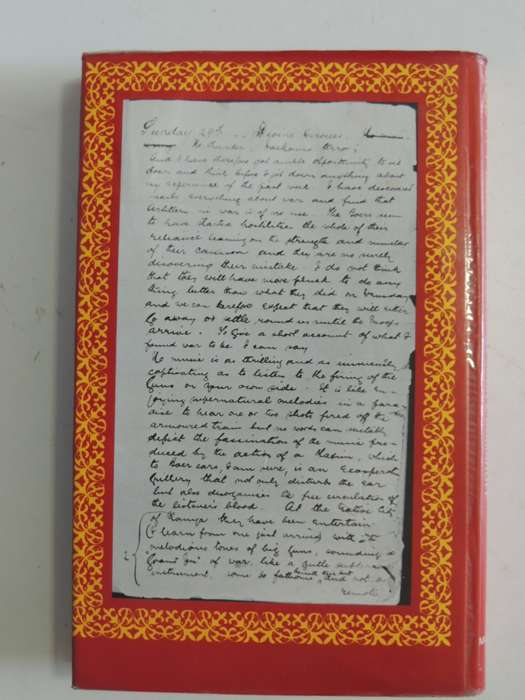 Sunday 29th. Divine Services.
No thunder
And I have therefore got ample opportunity to sit
down and think before I jot down anything about
my experience of the past week. I have discovered
nearly everything about war and find that
artillery in war is of no use. The Boers seem
to have started hostilities the whole of their
reliance leaning on the strength and number
of their cannon and they are now surely
discovering their mistake. I do not think
that they will have more pluck to do any
thing better than what they did on
and we can therefore expect that they will either
go away or settle round us until the troops
arrive. To give a short account of what I
found war to be, I can say
No music is as thrilling and as immensely
captivating as to listen to the firing of the
guns on your own side. It is like en-
joying supernatural melodies in a para-
dise to hear one or two shots fired off the
armoured train but no words can suitably
depict the fascination of the music pro-
duced by the action of a Maxim, which
to Boer ears, I am sure, is an exasperating
that not only disturbs the ear
but also disorganises the free circulation of
the listener's blood. At the
of Kanya they have been entertained
I learn from one just arrived with the
melodious tones of big guns, sounding a
of war, like a gentle
instrument, some fathoms beneath their feet and not a
remote